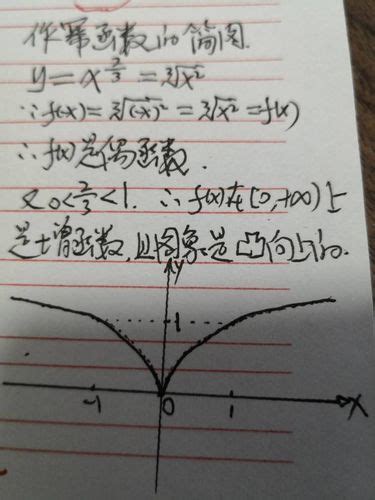 作幂函数的简图.
y=x^{2/3}=∛x²
∵f(-x)=∛(-x)²=∛x²=f(x)
∴f(x)是偶函数.
又0<2/3<1.∴f(x)在[0,+∞)上
是增函数,且图象是凸向上的.
y
1
-1 0 1 x